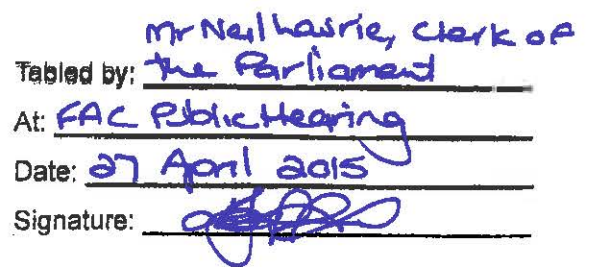 Mr Neil Laurie, Clerk of
Tabled by: the Parliament
At: FAC Public Hearing
Date: 27 April 2015
Signature: